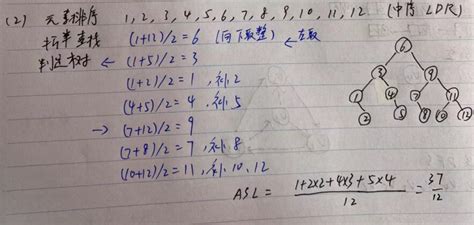 (2) 关系排序 1, 2, 3, 4, 5, 6, 7, 8, 9, 10, 11, 12 (中序 LDR)
折半查找 (1+12)/2 = 6 (向下取整) ← 左取
判定树 ← (1+5)/2 = 3
(1+2)/2 = 1 , 补2
(4+5)/2 = 4 , 补5
→ (7+12)/2 = 9
(7+8)/2 = 7 , 补8
(10+12)/2 = 11 , 补10, 12
ASL = 1+2×2+4×3+5×4 / 12 = 37 / 12
6
3 9
1 4 7 11
2 5 8 10 12